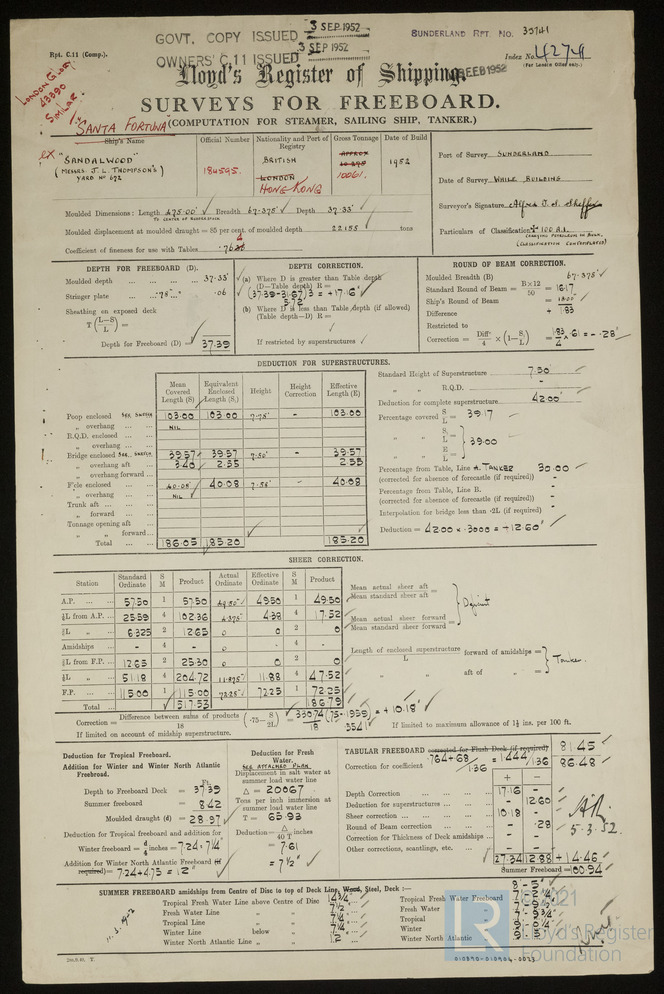 3 SEP 1952
GOVT. COPY ISSUED
SUNDERLAND RPT. NO. 35741
Rpt. C.11 (Comp.).
3 SEP 1952
OWNERS' C.11 ISSUED
Index No. 4279
(For London Office only.)
Lloyd's Register of Shipping.
FEB 1952
LONDON GLORY
43390
SIMILAR.
SURVEYS FOR FREEBOARD.
(COMPUTATION FOR STEAMER, SAILING SHIP, TANKER.)
"SANTA FORTUNA"
Ship's Name
Official Number
Nationality and Port of Registry
Gross Tonnage
Date of Build
ex "SANDALWOOD"
(MESSRS J. L. THOMPSON'S)
YARD No 672
184595.
BRITISH
LONDON
HONG KONG
APPROX
10061.
1952
Port of Survey SUNDERLAND
Date of Survey WHILE BUILDING
Surveyor's Signature
Particulars of Classification +100 A.1.
CARRYING PETROLEUM IN BULK.
(CLASSIFICATION CONTEMPLATED)
Moulded Dimensions: Length 475.00' Breadth 67.375' Depth 37.33'
Moulded displacement at moulded draught = 85 per cent. of moulded depth 22155 tons
Coefficient of fineness for use with Tables
DEPTH FOR FREEBOARD (D).
Moulded depth 37.33
Stringer plate .78" .06
Sheathing on exposed deck
T(L−S/L) =
Depth for Freeboard (D) = 37.39
DEPTH CORRECTION.
(a) Where D is greater than Table depth
(D—Table depth) R =
3 = +17.16"
(b) Where D is less than Table depth (if allowed)
(Table depth—D) R =
If restricted by superstructures
ROUND OF BEAM CORRECTION.
Moulded Breadth (B) 67.375'
Standard Round of Beam = B×12/50 = 16.17
Ship's Round of Beam = 18.00
Difference + 1.83
Restricted to
Correction = Diff/4 × (1−S₁/L) = 1.83/4 × .61 = −.28"
DEDUCTION FOR SUPERSTRUCTURES.
Mean Covered Length (S)
Equivalent Enclosed Length (S₁)
Height
Height Correction
Effective Length (E)
Poop enclosed 103.00 103.00 7.75' - 103.00
„ overhang NIL
R.Q.D. enclosed
„ overhang
Bridge enclosed 39.57 39.57 7.50' - 39.57
„ overhang aft 3.40 2.55 2.55
„ overhang forward
F'cle enclosed 40.08' 40.08 7.56' - 40.08
„ overhang NIL
Trunk aft
„ forward
Tonnage opening aft
„ „ forward
Total 186.05 185.20 185.20
Standard Height of Superstructure 7.50'
„ „ R.Q.D. -
Deduction for complete superstructure 42.00"
Percentage covered S/L = 39.17
„ „ S₁/L =
„ „ E/L = 39.00
Percentage from Table, Line A. TANKER 30.00
(corrected for absence of forecastle (if required))
Percentage from Table, Line B. -
(corrected for absence of forecastle (if required))
Interpolation for bridge less than ·2L (if required) -
Deduction = 42.00 × .3000 = +12.60"
SHEER CORRECTION.
Station
Standard Ordinate
S M
Product
Actual Ordinate
Effective Ordinate
S M
Product
A.P. 57.50 1 57.50 49.50" 49.50 1 49.50
⅙L from A.P. 25.59 4 102.36 4.375" 4.38 4 17.52
⅓L „ 6.325 2 12.65 0 0 2 0
Amidships - 4 - 0 - 4 -
⅓L from F.P. 12.65 2 25.30 0 0 2 0
⅙L „ 51.18 4 204.72 11.875" 11.88 4 47.52
F.P. 115.00 1 115.00 72.25" 72.25 1 72.25
Total 517.53 186.79
Mean actual sheer aft =
Mean standard sheer aft
Mean actual sheer forward =
Mean standard sheer forward
Deficient
Length of enclosed superstructure forward of amidships =
L
„ „ aft of „ =
Tanker.
Correction = Difference between sums of products/18 (·75−S/2L) = 330.74/18 (.75−.1959) = +10.18"
.5541
If limited on account of midship superstructure.
If limited to maximum allowance of 1½ ins. per 100 ft.
Deduction for Tropical Freeboard.
Addition for Winter and Winter North Atlantic Freeboard.
Ft.
Depth to Freeboard Deck = 37.39
Summer freeboard = 8.42
Moulded draught (d) = 28.97
Deduction for Tropical freeboard and addition for
Winter freeboard = d/4 inches = 7.24 = 7¼"
Addition for Winter North Atlantic Freeboard (if required) = 7.24+4.75 = 12"
Deduction for Fresh Water.
SEE ATTACHED PLAN
Displacement in salt water at summer load water line
Δ = 20067
Tons per inch immersion at summer load water line
T = 65.93
Deduction = Δ/40 T inches
= 7.61
= 7½"
TABULAR FREEBOARD corrected for Flush Deck (if required) 81.45
Correction for coefficient .764+.68/1.36 = 1.444/1.36 86.48
+ −
Depth Correction 17.16 -
Deduction for superstructures - 12.60
Sheer correction 10.18 -
Round of Beam correction - .28
Correction for Thickness of Deck amidships - -
Other corrections, scantlings, etc. - -
27.34 12.88 +14.46
Summer Freeboard = 100.94
5.3.52.
SUMMER FREEBOARD amidships from Centre of Disc to top of Deck Line, Wood, Steel, Deck:— 8'-5"
Tropical Fresh Water Line above Centre of Disc 14¾"
Fresh Water Line „ „ 7½"
Tropical Line „ „ 7¼"
Winter Line below „ 7¼"
Winter North Atlantic Line „ „ 12"
Tropical Fresh Water Freeboard
Fresh Water „
Tropical „
Winter „
Winter North Atlantic „
© 2021
Lloyd's Register
Foundation
010890-010904-0023